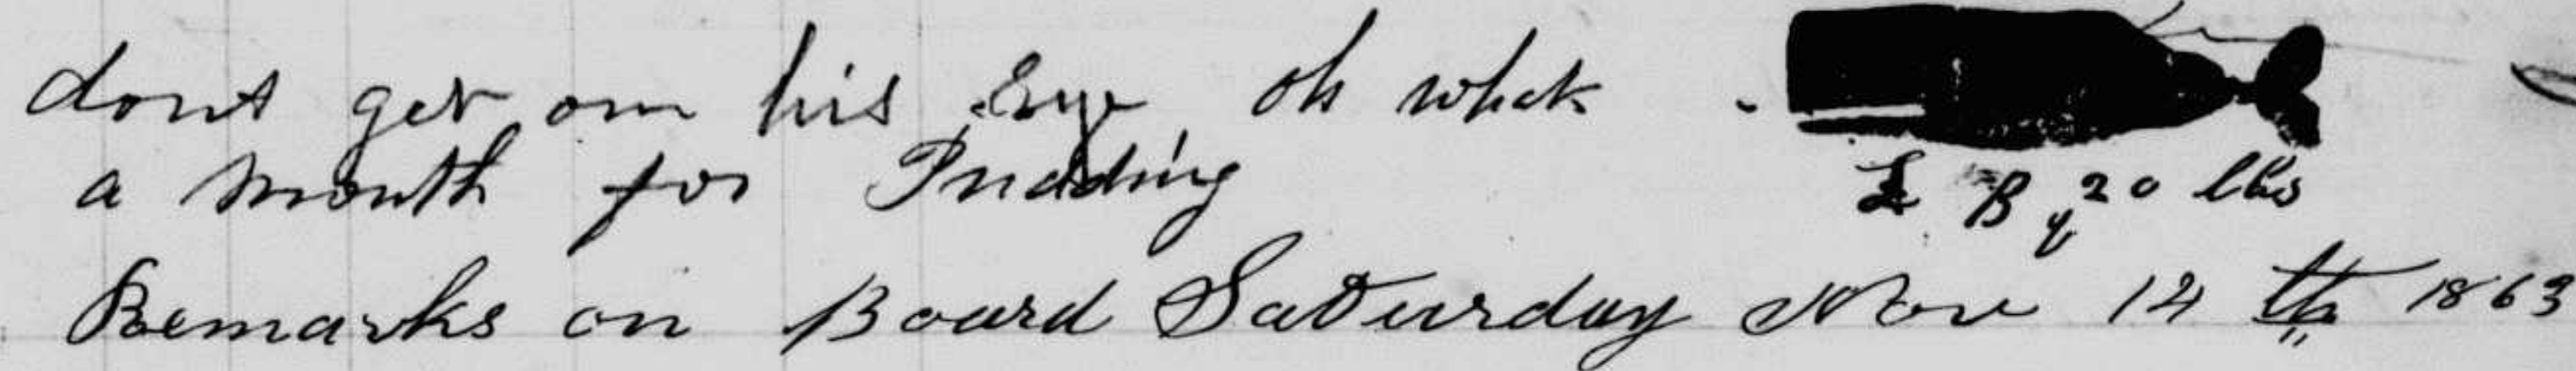 dont get on his Eye oh what
a month for Pudding
L B 20 lbs
Remarks on Board Saturday Nov 14th 1863